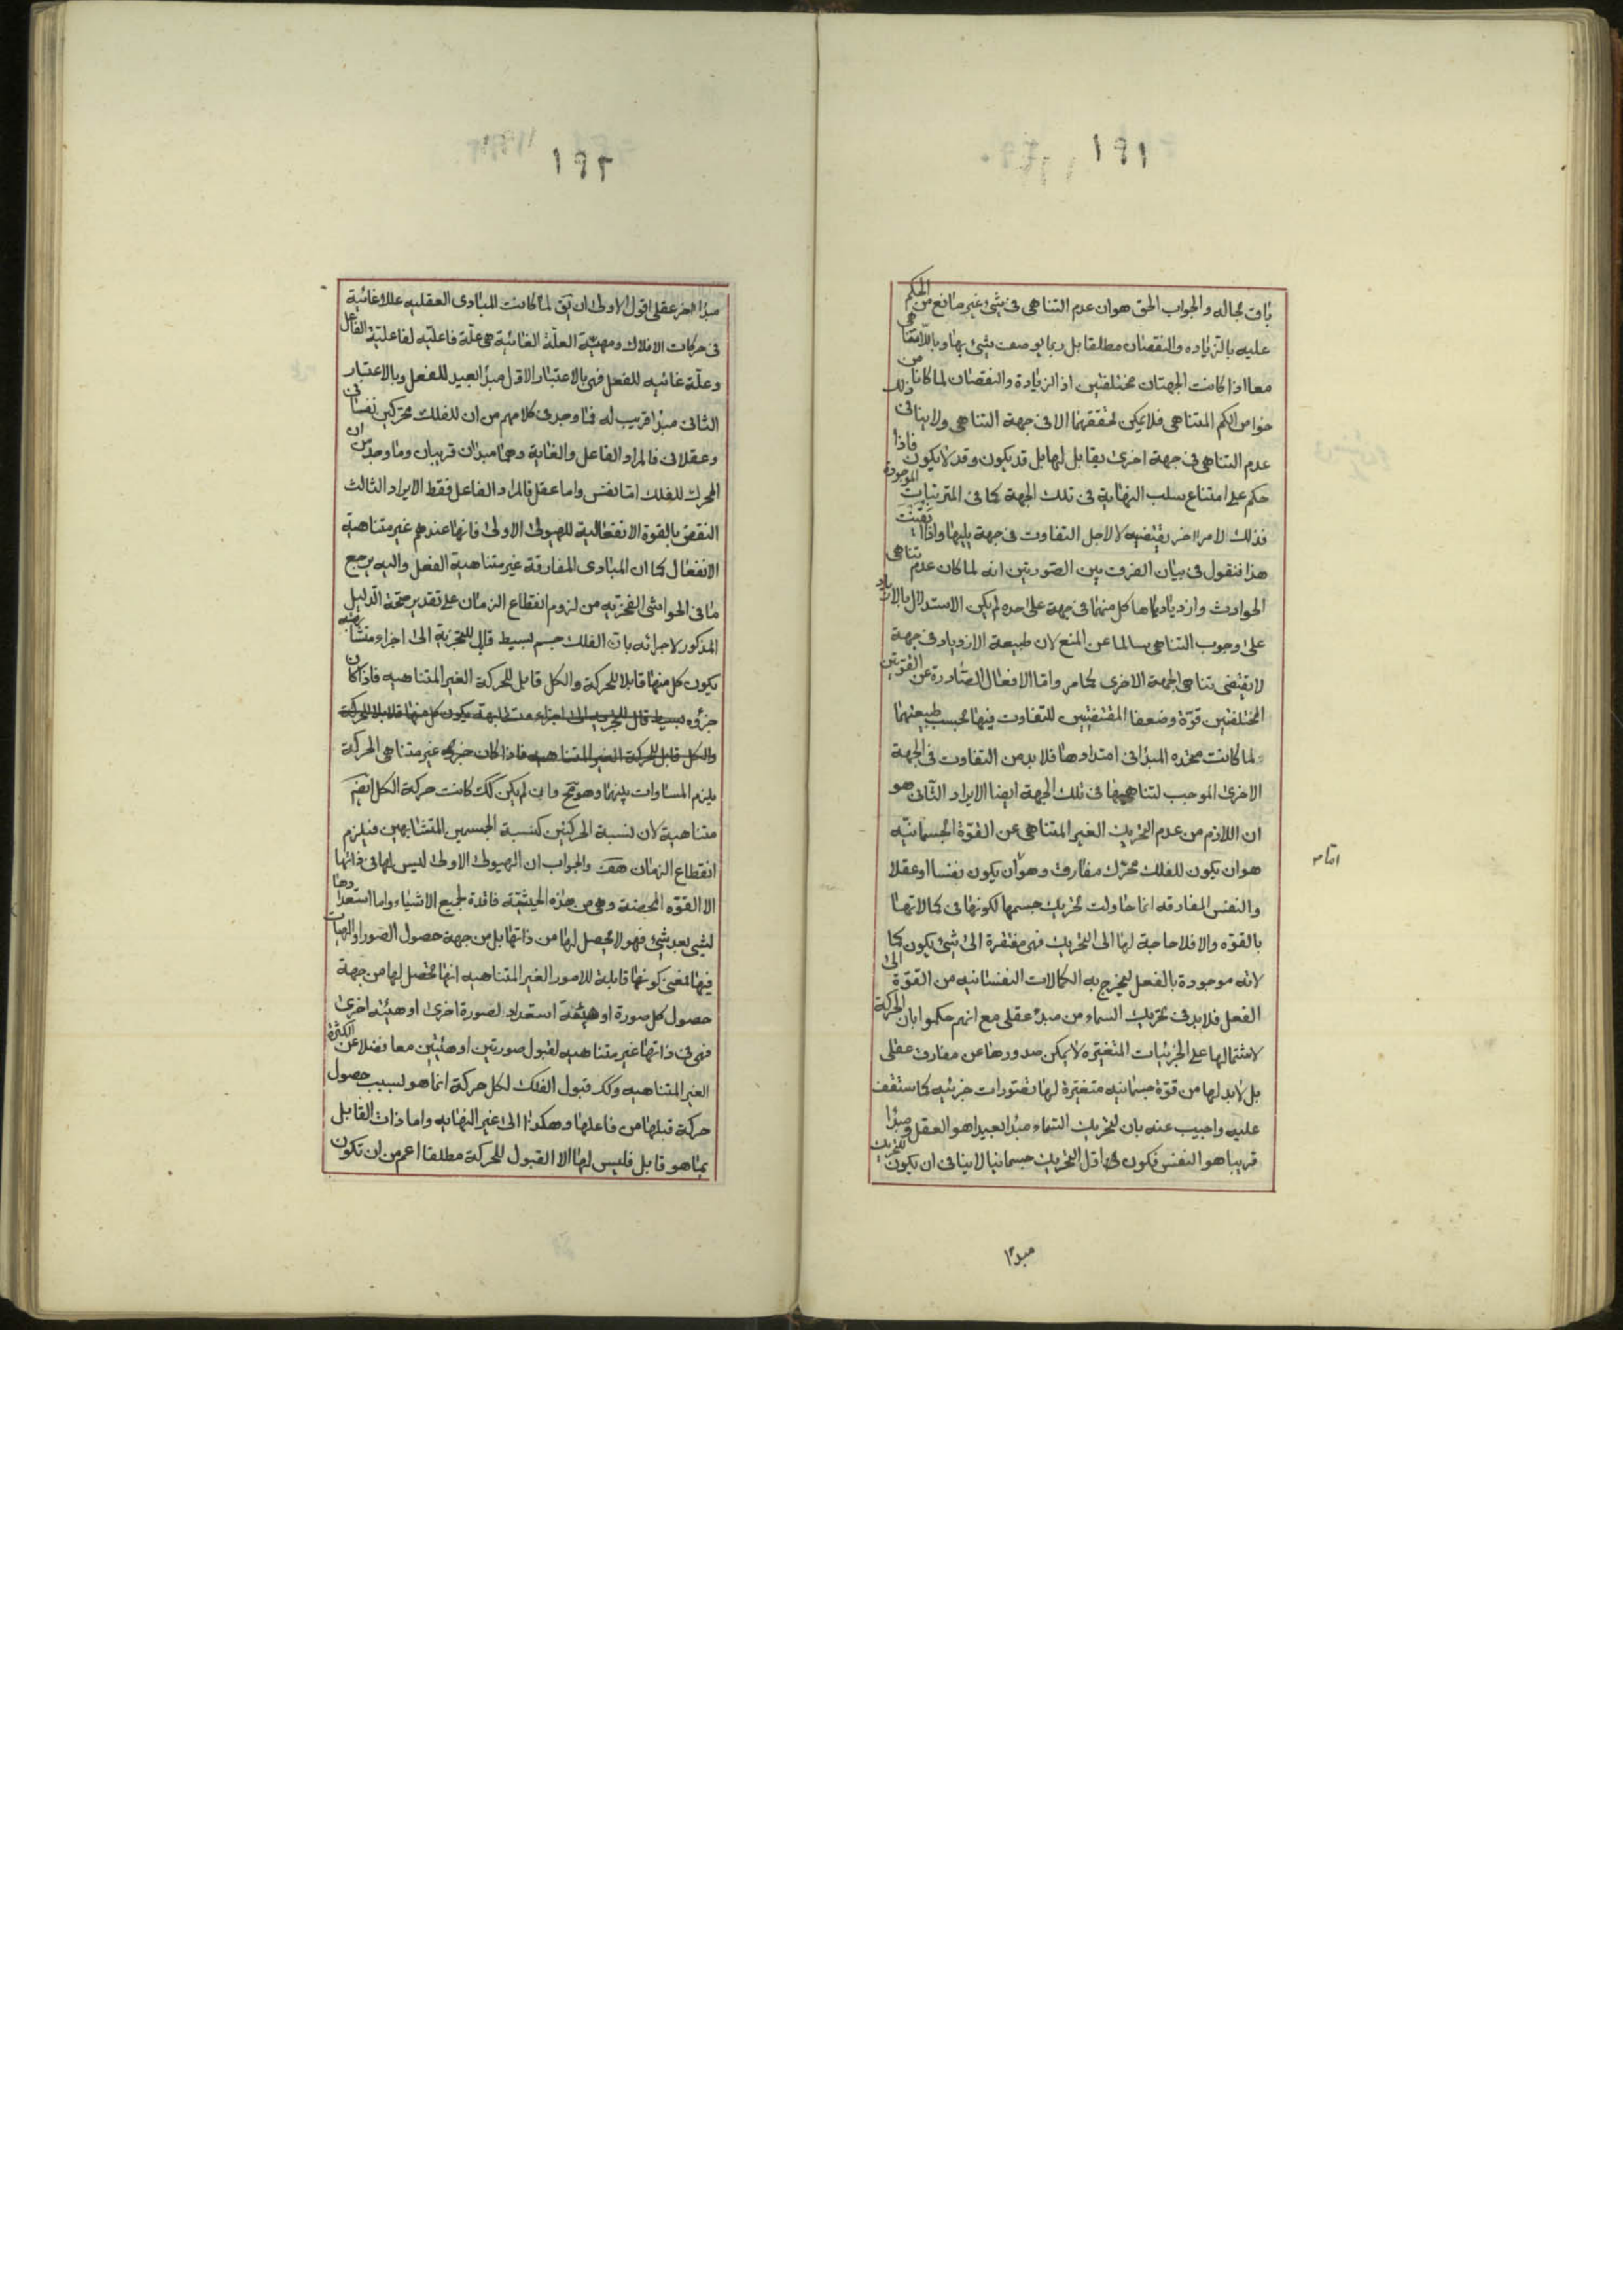 ١٩١
باق بحاله والجواب الحق هو ان عدم التناهى فى شئ غير مانع من الحكم
عليه بالزياده والنقصان مطلقا بل ربما يوصف شئ بها وباللاتناهى
معا اذا كانت الجهتان مختلفتين اذ الزيادة والنقصان لما كانا من
خواص الكم المتناهى فلا يمكن تحققهما الا فى جهة التناهى ولا ينافى ذلك
عدم التناهى فى جهة اخرى يقابل لها بل قد يكون وقد لا يكون فاذا
حكم على امتناع سلب النهاية فى تلك الجهة كما فى المترتبات الموجودة
فذلك لامر اخر يقتضيه لا لاجل التفاوت فى جهة يليها واذا تيقنت
هذا فنقول فى بيان الفرق بين الصورتين انه لما كان عدم تناهى
الحوادث وازديادها كل منهما فى جهة على حده لم يكن الاستدلال بالازدياد
على وجوب التناهى سالما عن المنع لان طبيعة الازدياد فى جهة
لا يقتضى تناهى الجهة الاخرى كما مر واما الافعال الصادرة عن القوتين
المختلفتين قوة وضعفا المقتضيتين للتفاوت فيها بحسب طبيعتهما
لما كانت متحده المبدا فى امتدادها فلا بد من التفاوت فى الجهة
الاخرى الموجب لتناهيها فى تلك الجهة ايضا الايراد الثانى هو
ان اللازم من عدم التحريك الغير المتناهى عن القوة الجسمانيه
هو ان يكون للفلك محرك مفارق وهو ان يكون نفسا او عقلا
والنفس المفارقه انما حاولت تحريك جسمها لكونها فى كمالاتها
بالقوه والا فلا حاجة لها الى التحريك فهى مفتقرة الى شئ يكون كما
لاته موجودة بالفعل ليخرج به الكمالات النفسانيه من القوة الى
الفعل فلا بد فى تحريك السماء من مبدء عقلى مع انهم حكموا بان الحركة
لاشتمالها على الجزئيات المتغيره لا يمكن صدورها عن مفارق عقلى
بل لا بد لها من قوة جسمانيه متغيرة لها تصورات جزئيه كما ستقف
عليه واجيب عنه بان لتحريك السماء مبدا بعيدا هو العقل ومبدا
قريبا هو النفس فكون اول التحريك جسمانيا لا ينافى ان يكون للتحريك
مبدا
١٩٢
مبدا اخر عقلى اقول الاولى ان يق لما كانت المبادى العقليه عللا غائية
فى حركات الافلاك ومهية العلة الغائية هى علة فاعليه لفاعلية الفاعل
وعلة غائيه للفعل فهى بالاعتبار الاول مبدا بعيد للفعل وبالاعتبار
الثانى مبدا قريب له فما وجد فى كلامهم من ان للفلك محركين نفسانى
وعقلانى فالمراد الفاعل والغاية وهما مبدان قريبان وما وجد من ان
المحرك للفلك اما نفس واما عقل فالمراد الفاعل فقط الايراد الثالث
النقض بالقوة الانفعالية للهيولى الاولى فانها عندهم غير متناهية
الانفعال كما ان المبادى المفارقة غير متناهية الفعل واليه يرجع
ما فى الحواشى الفخريه من لزوم انقطاع الزمان على تقدير صحة الدليل
المذكور لاجرائه بان الفلك جسم بسيط قابل للتجزية الى اجزاء متشابهة
يكون كل منها قابلا للحركة والكل قابل للحركة الغير المتناهيه فاذا كان
جزؤه بسيط قابل للتجزيه الى اجزاء متشابهة يكون كل منها قابلا للحركة
والكل قابل للحركة الغير المتناهيه فاذا كان جزؤه غير متناهى الحركة
يلزم المساوات بينهما وهو مح وان لم يكن كك كانت حركة الكل ايضا
متناهية لان نسبة الحركتين كنسبة الجسمين المتشابهين فيلزم
انقطاع الزمان هف والجواب ان الهيولى الاولى ليس لها فى ذاتها
الا القوه المحضة وهى من هذه الحيثية فاقدة لجميع الاشياء واما استعدادها
لشئ بعد شئ فهو لا يحصل لها من ذاتها بل من جهة حصول الصور او الهيات
فيها فمعنى كونها قابلة للامور الغير المتناهيه انها تحصل لها من جهة
حصول كل صورة او هيئة استعداد لصورة اخرى او هيئة اخرى
فهى فى ذاتها غير متناهيه لقبول صورتين او هيئتين معا فضلا عن الكثرة
الغير المتناهيه وكك قبول الفلك لكل حركة انما هو لسبب حصول
حركة قبلها من فاعلها وهكذا الى غير النهايه واما ذات القابل
بما هو قابل فليس لها الا القبول للحركة مطلقا اعم من ان تكون